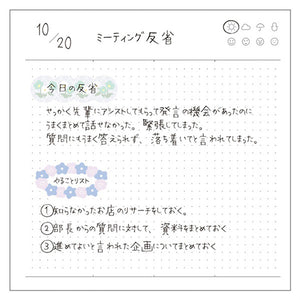 10/20 ミーティング反省
今日の反省
せっかく先輩にアシストしてもらって発言の機会があったのに
うまくまとめて話せなかった。緊張してしまった。
質問にもうまく答えられず、落ち着いてと言われてしまった。
やることリスト
①知らなかったお店のリサーチをしておく。
②部長からの質問に対して、資料をまとめておく
③進めてよいと言われた企画についてまとめておく